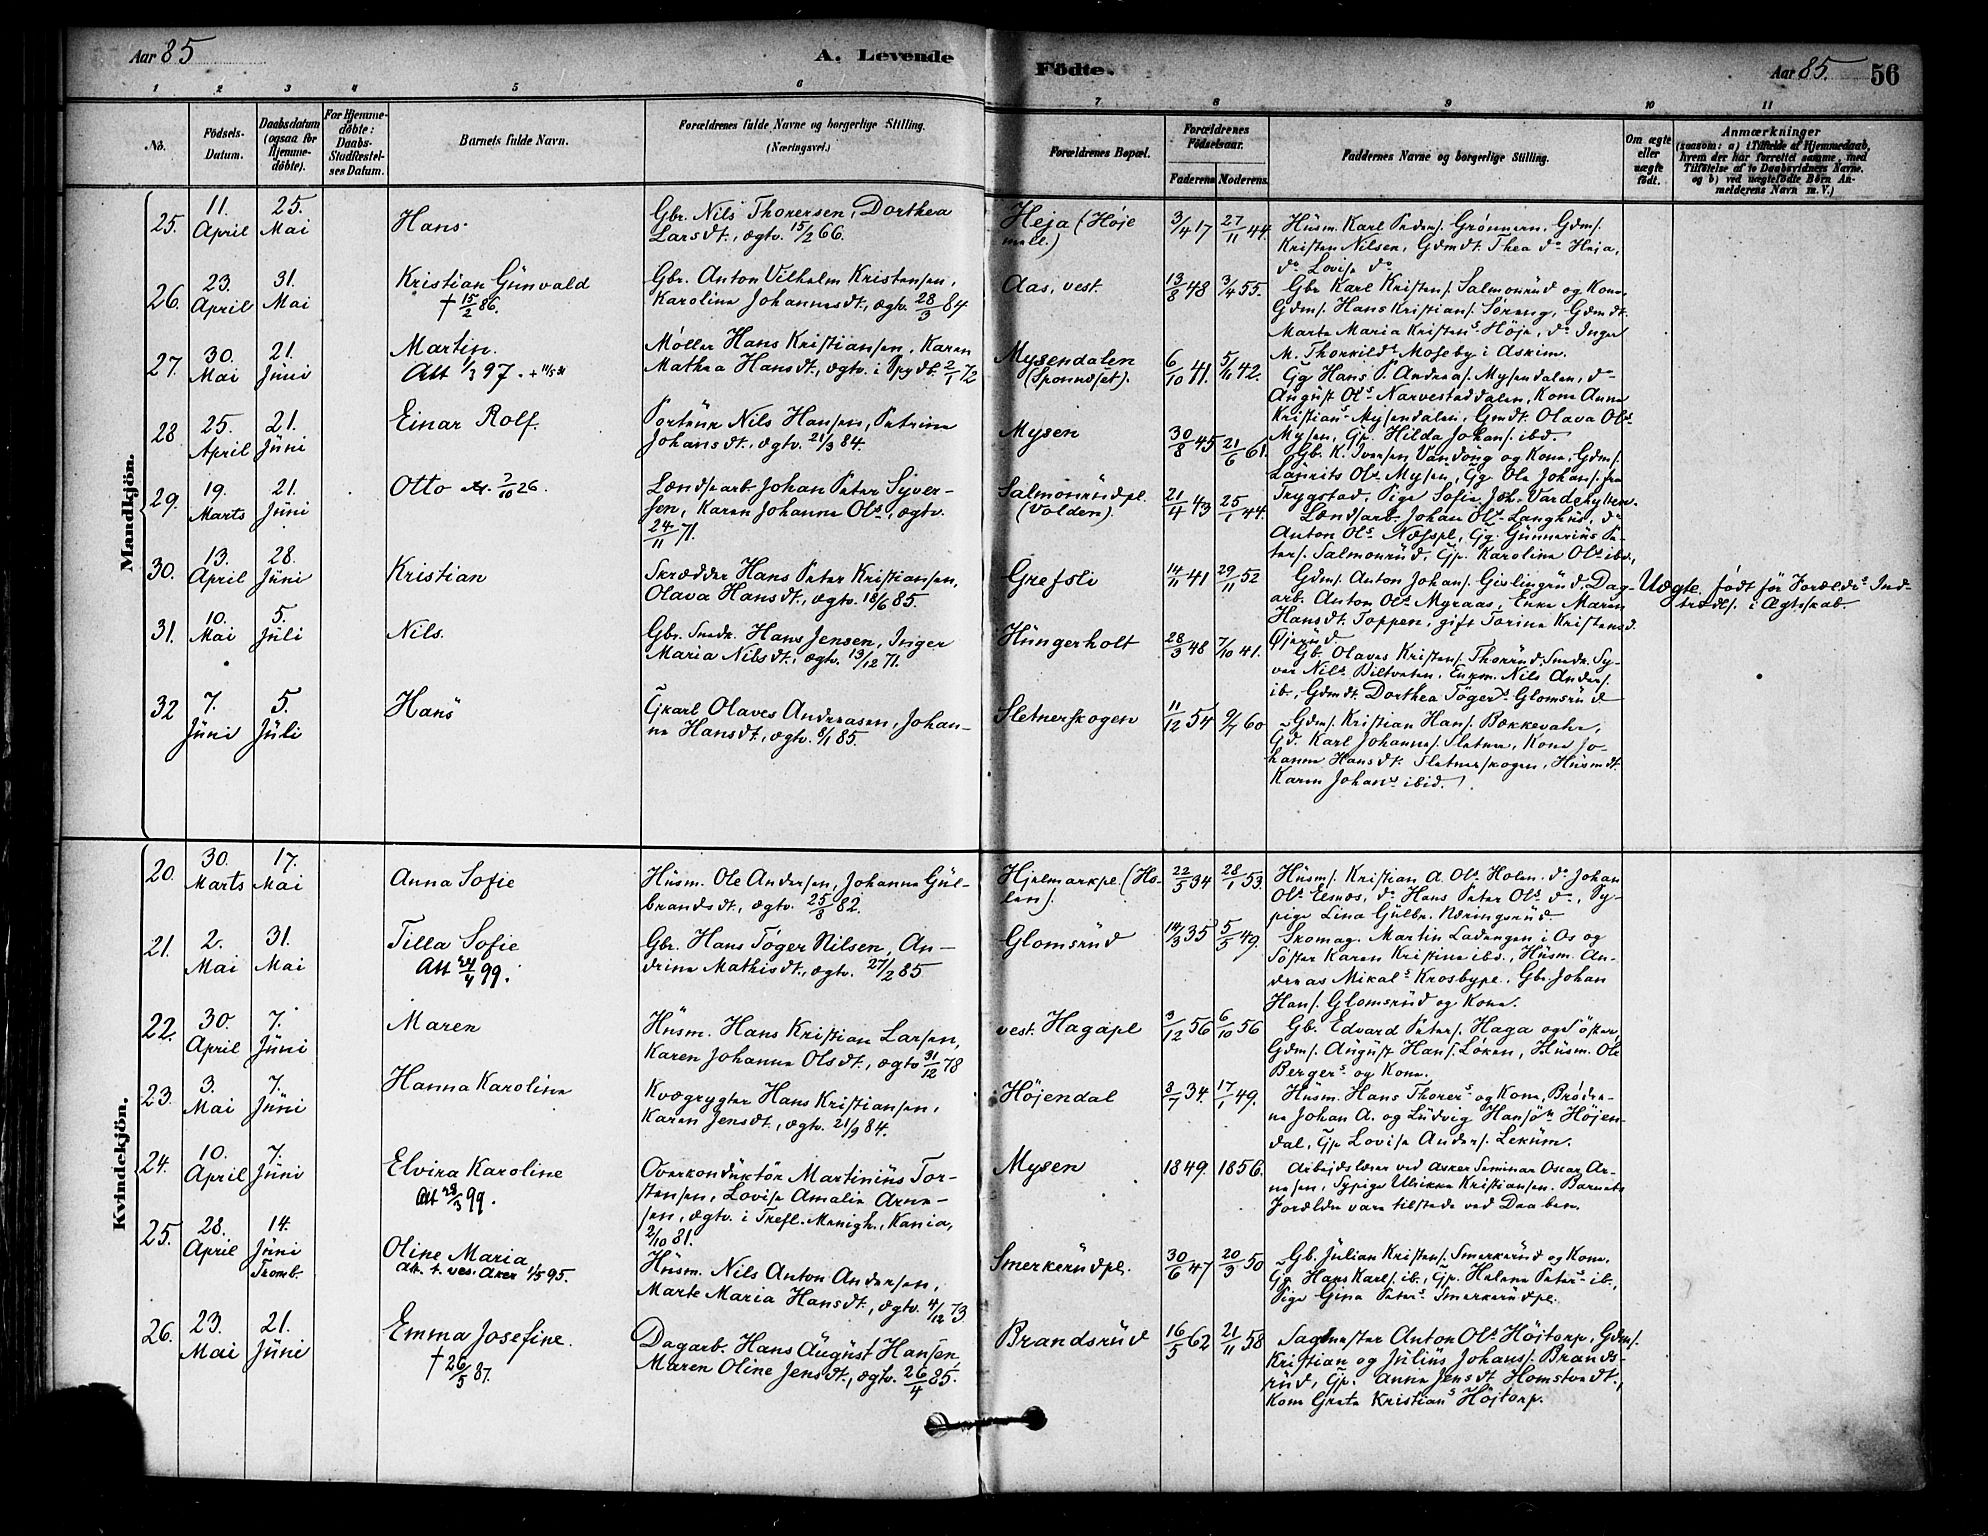 Aar 85
A. Levende
Fødte.
Aar 85.
56
1 2 3 4 5 6 7 8 9 10 11
No.
Fødsels-
Datum.
Daabsdatum
(ogsaa for
Hjemme-
døbte).
For Hjemme-
døbte:
Daabs-
Stadfæstel-
ses Datum.
Barnets fulde Navn.
Forældrenes fulde Navne og borgerlige Stilling.
(Næringsvei.)
Forældrenes Bopæl.
Forældrenes
Fødselsaar.
Faderens Moderens.
Faddernes Navne og borgerlige Stilling.
Om ægte
eller
uægte
født.
Anmærkninger
(saasom: a) i Tilfælde af Hjemmedaab,
hvem der har forrettet samme, med
Tilføielse af to Daabsvidners Navne.
og b) ved uægtefødte Børn An-
melderens Navn m. V.)
Mandkjön.
25. 11. April 25. Mai
Hans
Gbr. Nils Thoresen, Dorthea
Larsdt., ægtv. 15/2 66.
Heja (Høje
mell.)
3/4 17 27/11 44.
Husm. Karl Peders. Grønnern, Gdms.
Kristen Nilsen, Gdmdt. Thea do Heja,
do Lovise do
26. 23. April 31. Mai
Kristian Günvald
† 15/2 86.
Gbr. Anton Vilhelm Kristensen,
Karoline Johannesdt., ægtv. 28/3 84
Aas, vest.
13/8 48 3/4 55.
Gbr Karl Kristens. Salmonrud og Kone,
Gdms. Hans Kristians. Søreng, Gdmdt.
Marte Maria Kristens Höje, do Inger
M. Thorkilds Moseby i Askim.
27. 30. Mai 21. Jüni
Martin.
Att 1/3 97.
Møller Hans Kristiansen, Karen
Mathea Hansdt., ægtv. i Spydb. 2/1 72
Mysendalen
6/10 41. 5/11 42.
Gg Hans P. Andreas. Mysendalen, do
August Ols Narvestaddalen, Kone Anne
Kristians Mysendalen, Gmdt. Olava Ols
Mysen, Gp. Hilda Johans. ibd.
28 25. April 21. Jüni
Einar Rolf.
Portnür Nils Hansen, Petrine
Johansdt., ægtv. 21/3 84.
Mysen
30/8 45 21/6 61.
Gb. K. Iversen Vandong og Kone, Gdms.
Laurits Ols Mysen, Gg. Ole Johans. fra
Trygstad, Pige Sofie Joh. Vardehytten.
29. 19. Marts 21. Jüni
Otto 7/10 26.
Landsearb. Johan Peter Syver-
sen, Karen Johanne Ols, ægtv.
24/11 71.
Salmonrüdpl.
(Volden).
21/4 43 25/1 44.
Landsarb. Johan Ols Langhus, do
Anton Ols Næsspl, Gg. Günnerius Pe-
ters. Salmonrüd, Gp. Karoline Ols ibd.,
30. 13. April 28. Jüni
Kristian
Skrædder Hans Peter Kristiansen,
Olava Hansdt., ægtv. 18/6 85.
Grefsli
14/11 41 29/11 52
Gdms. Anton Johans. Gislingrüd, Dag-
arb. Anton Ols Myraas, Enke Maren
Hansdt. Toppen, gift Torine Kristensd.
Øjerud
Uægte, født før Foreldrs Ind-
træds. i Ægteskab.
31. 10. Mai 5. Jüli
Nils.
Gbr. Smdr. Hans Jensen, Inger
Maria Nilsdt., ægtv. 13/12 71.
Hüngerholt
28/3 48 7/10 41.
Gb. Olaves Kristens. Thorrüd, Smdr. Sy-
ver Nils Biltveten, Enkm. Nils Anders.
ib, Gdmdt. Dorthea Tøgers Glomsrüd
32 7. Jüni 5. Jüli
Hans
Gjkarl Olaves Andreasen, Johan-
ne Hansdt., ægtv. 8/1 85.
Sletnerskogen
11/12 54 9/7 60
Gdms. Kristian Hans. Bækkevater,
Gd. Karl Johannes. Sletner, Kone Jo-
hanne Hansdt. Sletnerskogen, Hüsmdt.
Karen Johans ibid.
Kvindekjön.
20. 30. Marts 17. Mai
Anna Sofie
Hüsm. Ole Andersen, Johanne Gül-
brandsdt., ægtv. 25/8 82.
Hjelmarkpl. (Ho-
len).
22/5 34 28/1 53.
Hüsms. Kristian A. Ols. Holen, do Johan
Ols Elsnes, do Hans Peter Ols do, Sy-
pige Lina Gülbr. Næringsrüd
21. 2. Mai 31. Mai
Tilla Sofie
Att 24/4 99.
Gbr. Hans Tøger Nilsen, An-
drine Mathisdt., ægtv. 27/2 85
Glomsrüd
14/3 35 5/5 49.
Skomag. Martin Ladengen i Os og
Søster Karen Kristine ibd., Hüsm. An-
dreas Mikals Krosbype, Gbr Johan
Hans. Glomsrüd og Kone.
22. 30. April 7. Jüni
Maren
Hüsm. Hans Kristian Larsen,
Karen Johanne Olsdt., ægtv 31/12 78
vest. Hagapl
3/12 56 6/10 56
Gb. Edvard Peters. Haga og Søster,
Gdms. August Hans. Løken, Hüsm. Ole
Bergers og Kone.
23. 3. Mai 7. Jüni
Hanna Karoline
Kvægrygter Hans Kristiansen,
Karen Jensdt., ægtv. 21/9 84.
Höjendal
8/7 34. 17/1 49.
Hüsm. Hans Thorers og Kone, Brødre-
ne Johan A. og Lüdvig Hansøn Höjen-
dal, Gp Lovise Anders. Leküm.
24. 10. April 7. Jüni
Elvira Karoline
Att 28/3 99.
Overkondüktør Martiniüs Tor-
stensen, Lovise Amalie Arne-
sen, ægtv. i Trefl. Menigh., Kania,
2/10 81.
Mysen
1849. 1856.
Arbejdslærer ved Asker Seminar Oscar Ar-
nesen, Sypige Ulrikke Kristiansen. Barnets
Forældre vare tilstede ved Daaben.
25. 28. April 14. Jüni Tromb.
Oline Maria
Att. t. ves. Aker 1/5 95.
Hüsm. Nils Anton Andersen,
Marte Maria Hansdt., ægtv. 4/12 73
Smerkerüdpl.
30/6 47 20/3 50
Gb. Julian Kristens. Smerkerüd og Kone,
Gg Hans Karls. ib., Gp. Helene Peters ib.,
Pige Gina Peters Smerkerüdpl.
26. 23. Mai 21. Jüni
Emma Josefine.
† 26/5 87.
Dagarb. Hans August Hansen,
Maren Oline Jensdt., ægtv. 26/4 85.
Brandsrüd
16/5 62 21/11 58
Sagmester Anton Ols Höjtorp, Gdms.
Kristian og Jüliüs Johanss. Brands-
rüd, Gp. Anne Jensdt Homstvedt,
Kone Grete Kristians Höjtorp.